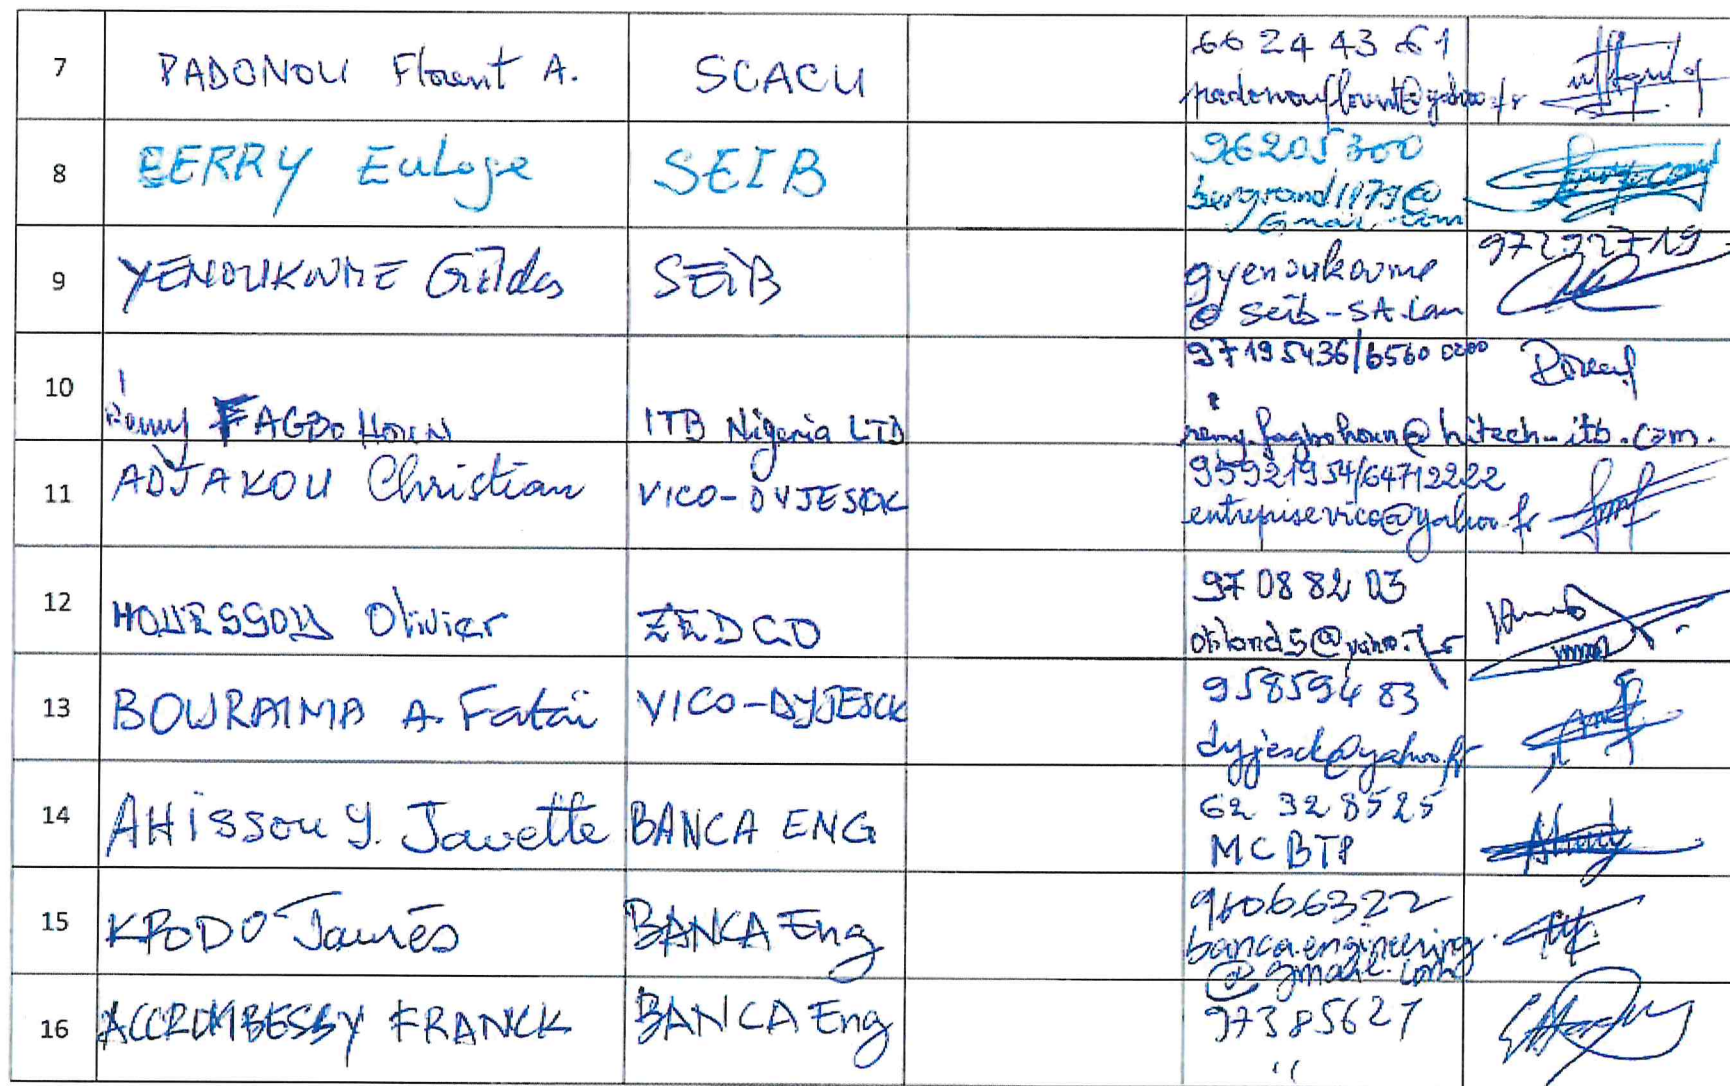 7 PADONOU Florent A. SCACU 66 24 43 61
padonouflorent@yahoo.fr
8 BERRY Euloge SEIB 96205300
bergrand1179@
Gmail.com
9 YENOUKOUME Gildas SEIB gyenoukoume 97232719
@ seib-SA.com
10 Rémy FAGBOHOUN ITB Nigeria LTD 97195436/6560 0200
remy.fagbohoun@hitech-itb.com.
11 ADJAKOU Christian VICO-DYJESCK 95921954/64712222
entreprisevico@yahoo.fr
12 HOUESSOU Olivier ZEDCO 97 08 82 03
@yahoo.fr
13 BOURAIMA A. Fataï VICO-DYJESCK 95859483
dyjesck@yahoo.fr
14 AHISSOU Y. Javette BANCA ENG 62 32 85 25
MCBTP
15 KPODO Jaurès BANCA Eng 96066322
banca.engineering
@gmail.com
16 ACCROMBESSY FRANCK BANCA Eng 97385627
''